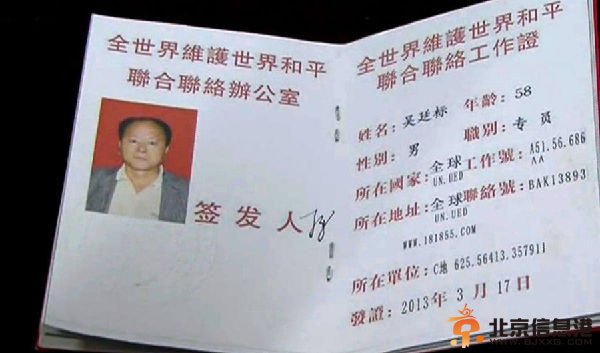 全世界維護世界和平
聯合聯絡辦公室
签发人
全世界維護世界和平
聯合聯絡工作證
姓名:吴廷标 年齡:58
性别:男 職别:专员
所在國家:全球 工作號:A51.56.686
UN.UED AA
所在地址:全球 聯絡號:BAK13893
UN.UED
WWW.181855.COM
所在單位:C地 625.56413.357911
發證:2013年3月17日
北京信息港
WWW.BJXXG.COM